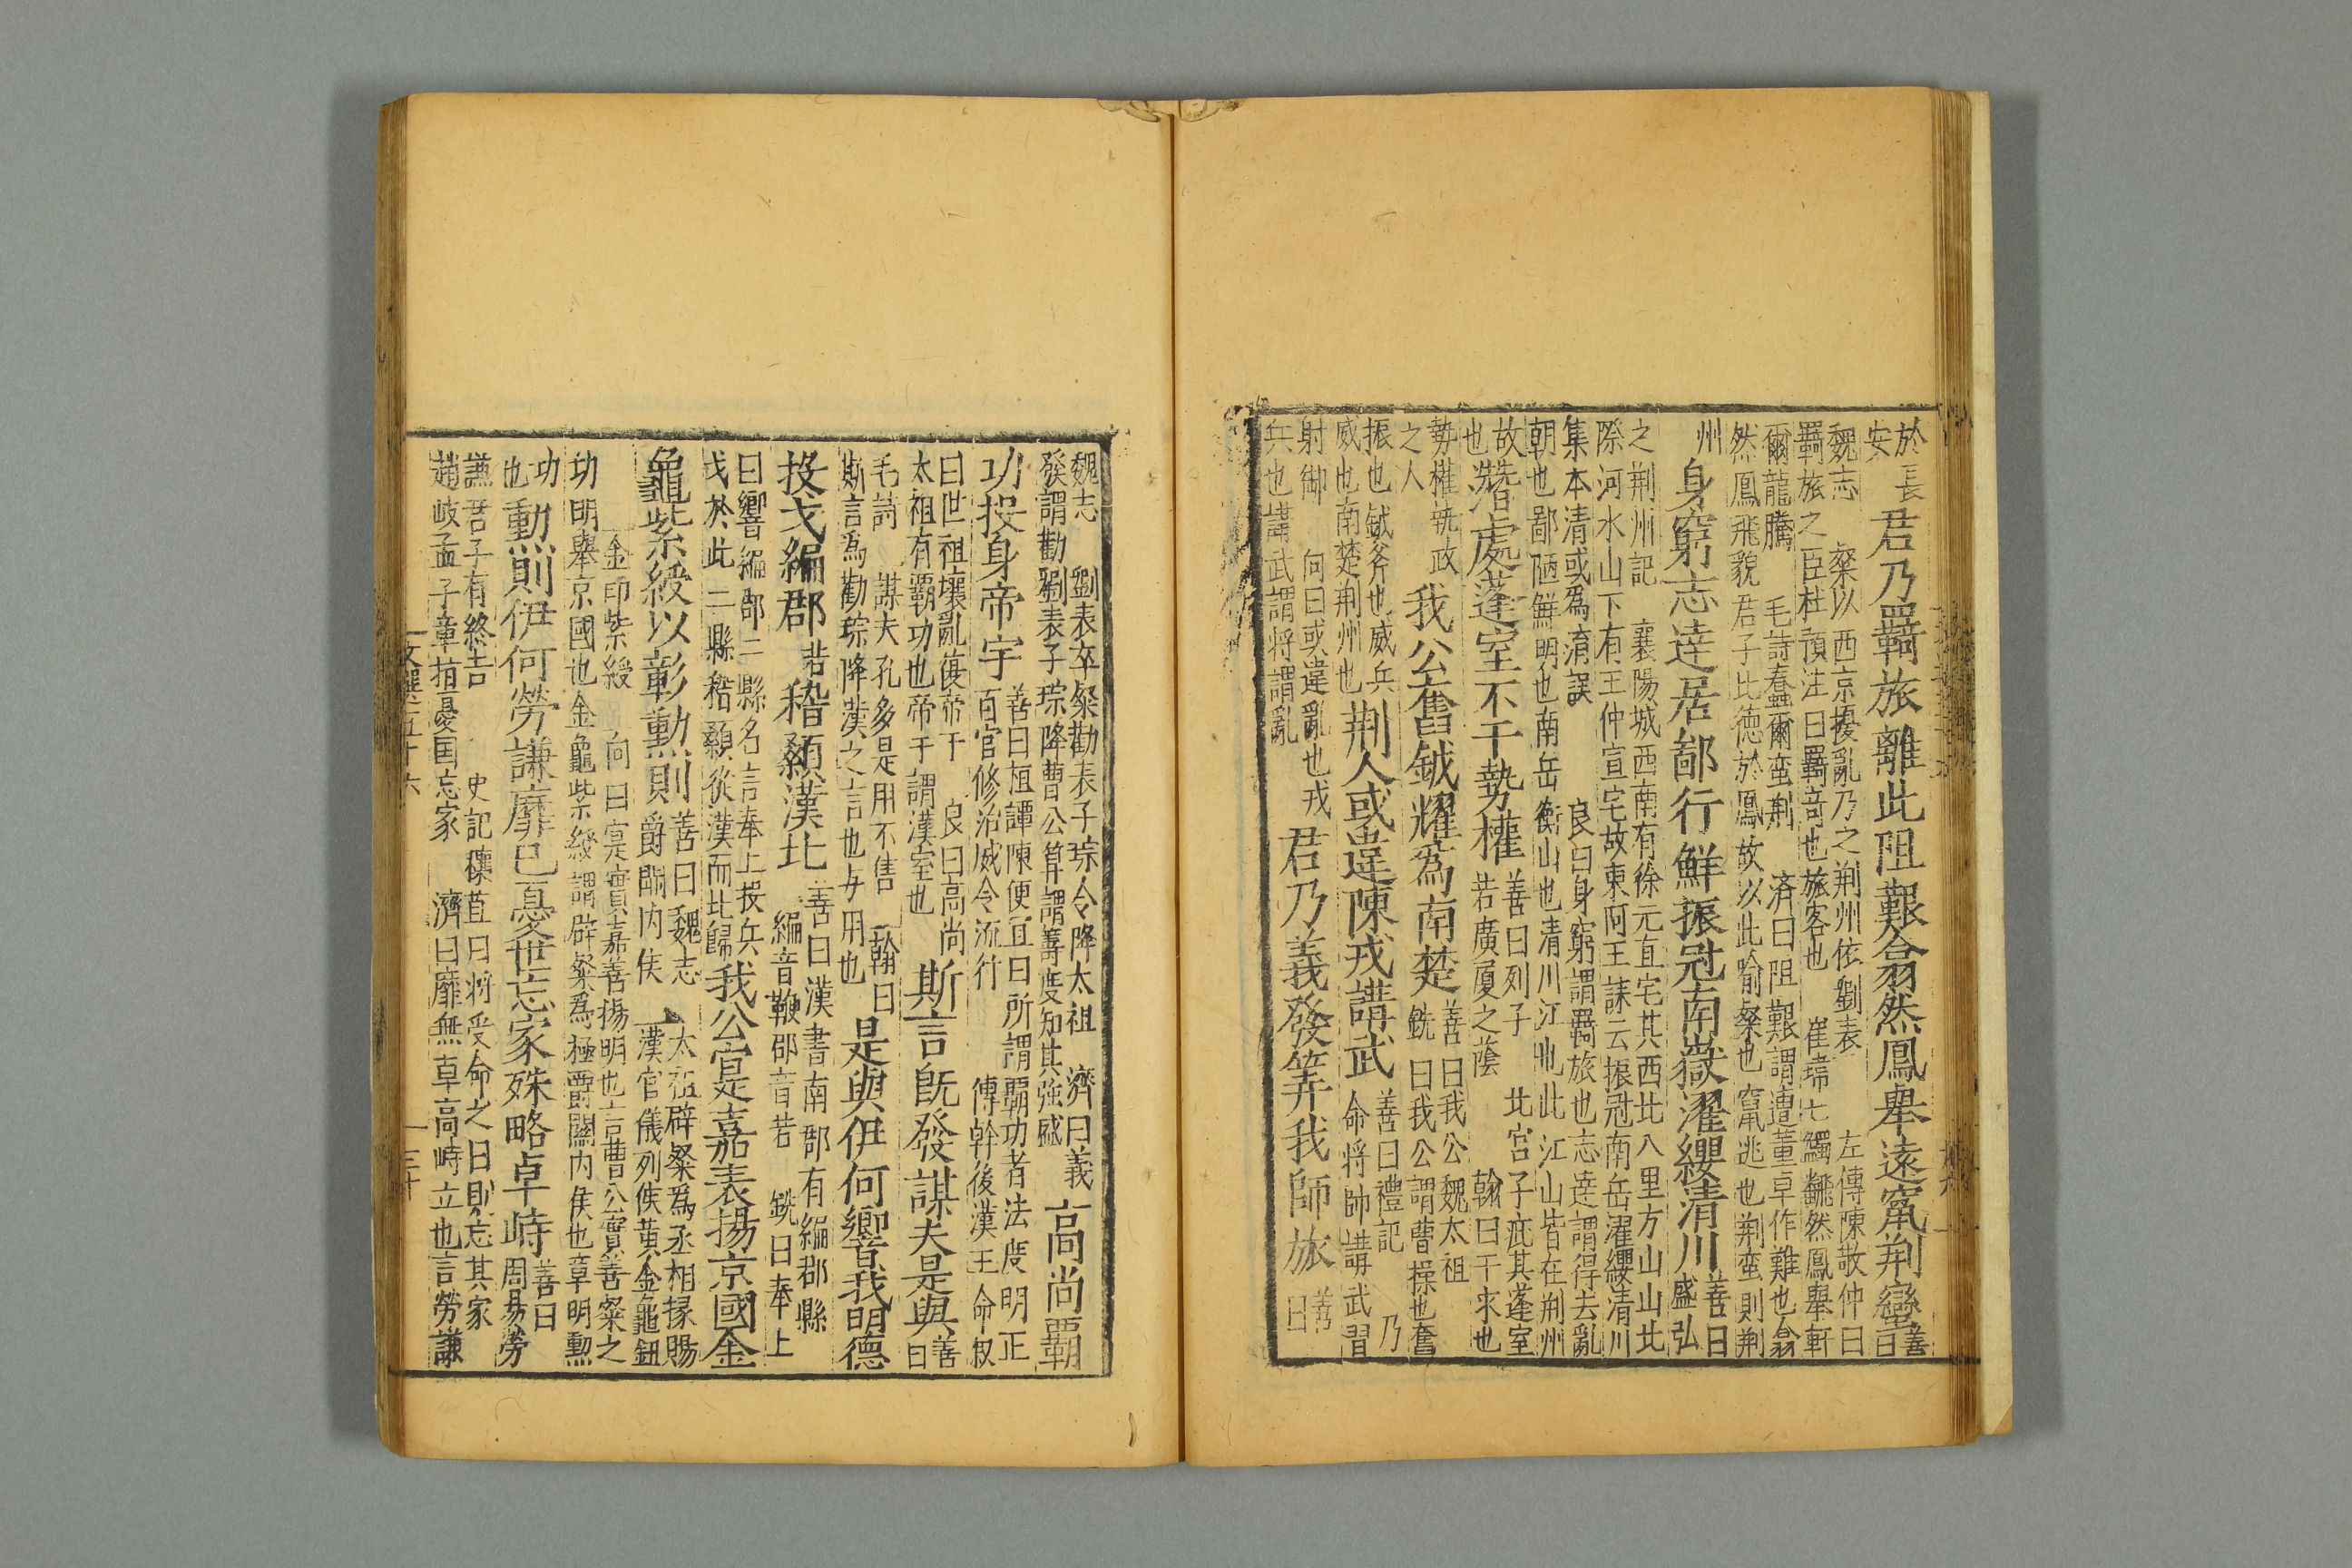 於長安君乃羇旅離此阻艱翕然鳳舉遠竄荊蠻善曰
魏志 粲以西京擾亂乃之荊州依劉表 左傳陳敬仲曰
羇旅之臣杜預注曰羇竒也旅客也 崔琦七蠲飜然鳳舉軒
爾龍騰 毛詩蠢爾蛮荊 済曰阻艱謂遭董卓作難也翕
然鳳飛貌君子比德於鳳故以此喻粲也竄逃也荊蛮則荊
州身窮志達居鄙行鮮振冠南嶽濯纓清川善曰盛弘
之荊州記 襄陽城西南有徐元直宅其西北八里方山山北
際河水山下有王仲宣宅故東阿王誄云振冠南岳濯纓清川
集本清或為淯誤 良曰身窮謂羇旅也志達謂得去亂
朝也鄙陋鮮明也南岳衡山也清川江也此江山皆在荊州
故也潛處蓬室不干勢權善曰列子 北宮子庇其蓬室
若廣厦之蔭 翰曰干求也
勢權執政之人我公奮鉞耀為南楚善曰我公魏太祖
銑曰我公謂曹操也奮
振也鉞斧也威兵
威也南楚荊州也荊人或違陳戎講武善曰禮記 乃
命将帥講武習
射御 向曰或違亂也戎
兵也講武謂将謂亂君乃義發筭我師旅善曰
魏志 劉表卒粲勸表子琮令降太祖 濟曰義
發謂勸劉表子琮降曹公筭謂籌度知其強盛高尚覇
功投身帝宇善曰桓譚陳便宜曰所謂覇功者法度明正
百官修治威令流行 傅幹後漢王命叙
曰世祖壤亂復帝于 良曰高尚
太祖有覇功也帝于謂漢室也斯言既發謀夫是與善曰
毛詩 謀夫孔多是用不售 翰曰
斯言為勸琮降漢之言也与用也是與伊何響我明德
投戈編郡若稽顙漢北善曰漢書南郡有編郡縣
編音鞭郡音若 銑曰奉上
曰響編郡二縣名言奉上投兵
戈於此二縣稽顙從漢而北歸我公寔嘉表揚京國金
龜紫綬以彰勳則善曰魏志 太祖辟粲為丞相掾賜
爵關内侯 漢官儀列侯黃金龜鈕
金印紫綬 向曰寔實嘉善揚明也言曹公實善粲之
功明舉京國也金龜紫綬謂辟粲為極爵關内侯也章明勲
功也勳則伊何勞謙靡已憂世忘家殊略卓峙善曰周易勞
謙君子有終吉 史記穰苴曰将受命之日則忘其家
趙岐孟子章指憂国忘家 濟曰靡無卓高峙立也言勞謙
文選五十六 三十